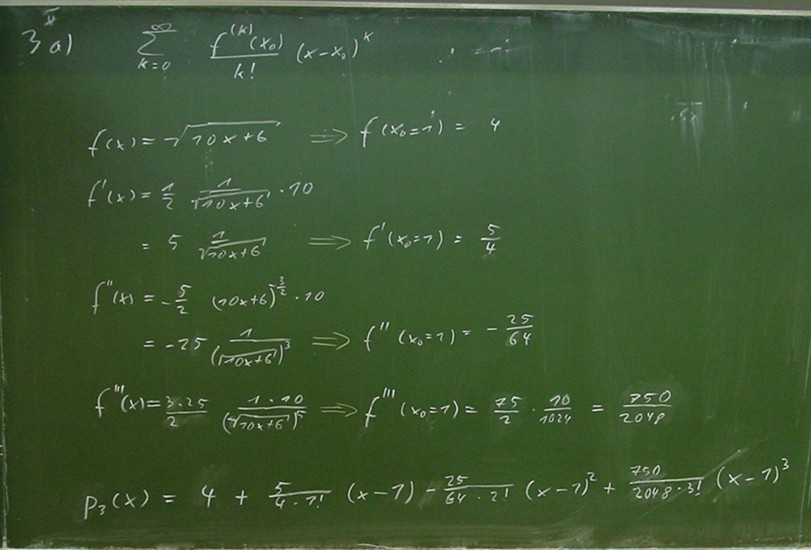 3a) ∑_{k=0}^{∞} f^{(k)}(x₀)/k! (x-x₀)^k
f(x) = √(10x+6) ⇒ f(x₀=1) = 4
f'(x) = 1/2 1/√(10x+6) · 10
= 5 1/√(10x+6) ⇒ f'(x₀=1) = 5/4
f''(x) = -5/2 (10x+6)^{-3/2} · 10
= -25 1/(√(10x+6))³ ⇒ f''(x₀=1) = -25/64
f'''(x) = 3·25/2 1·10/(√(10x+6))⁵ ⇒ f'''(x₀=1) = 75/2 · 10/1024 = 750/2048
p₃(x) = 4 + 5/(4·1!) (x-1) - 25/(64·2!) (x-1)² + 750/(2048·3!) (x-1)³